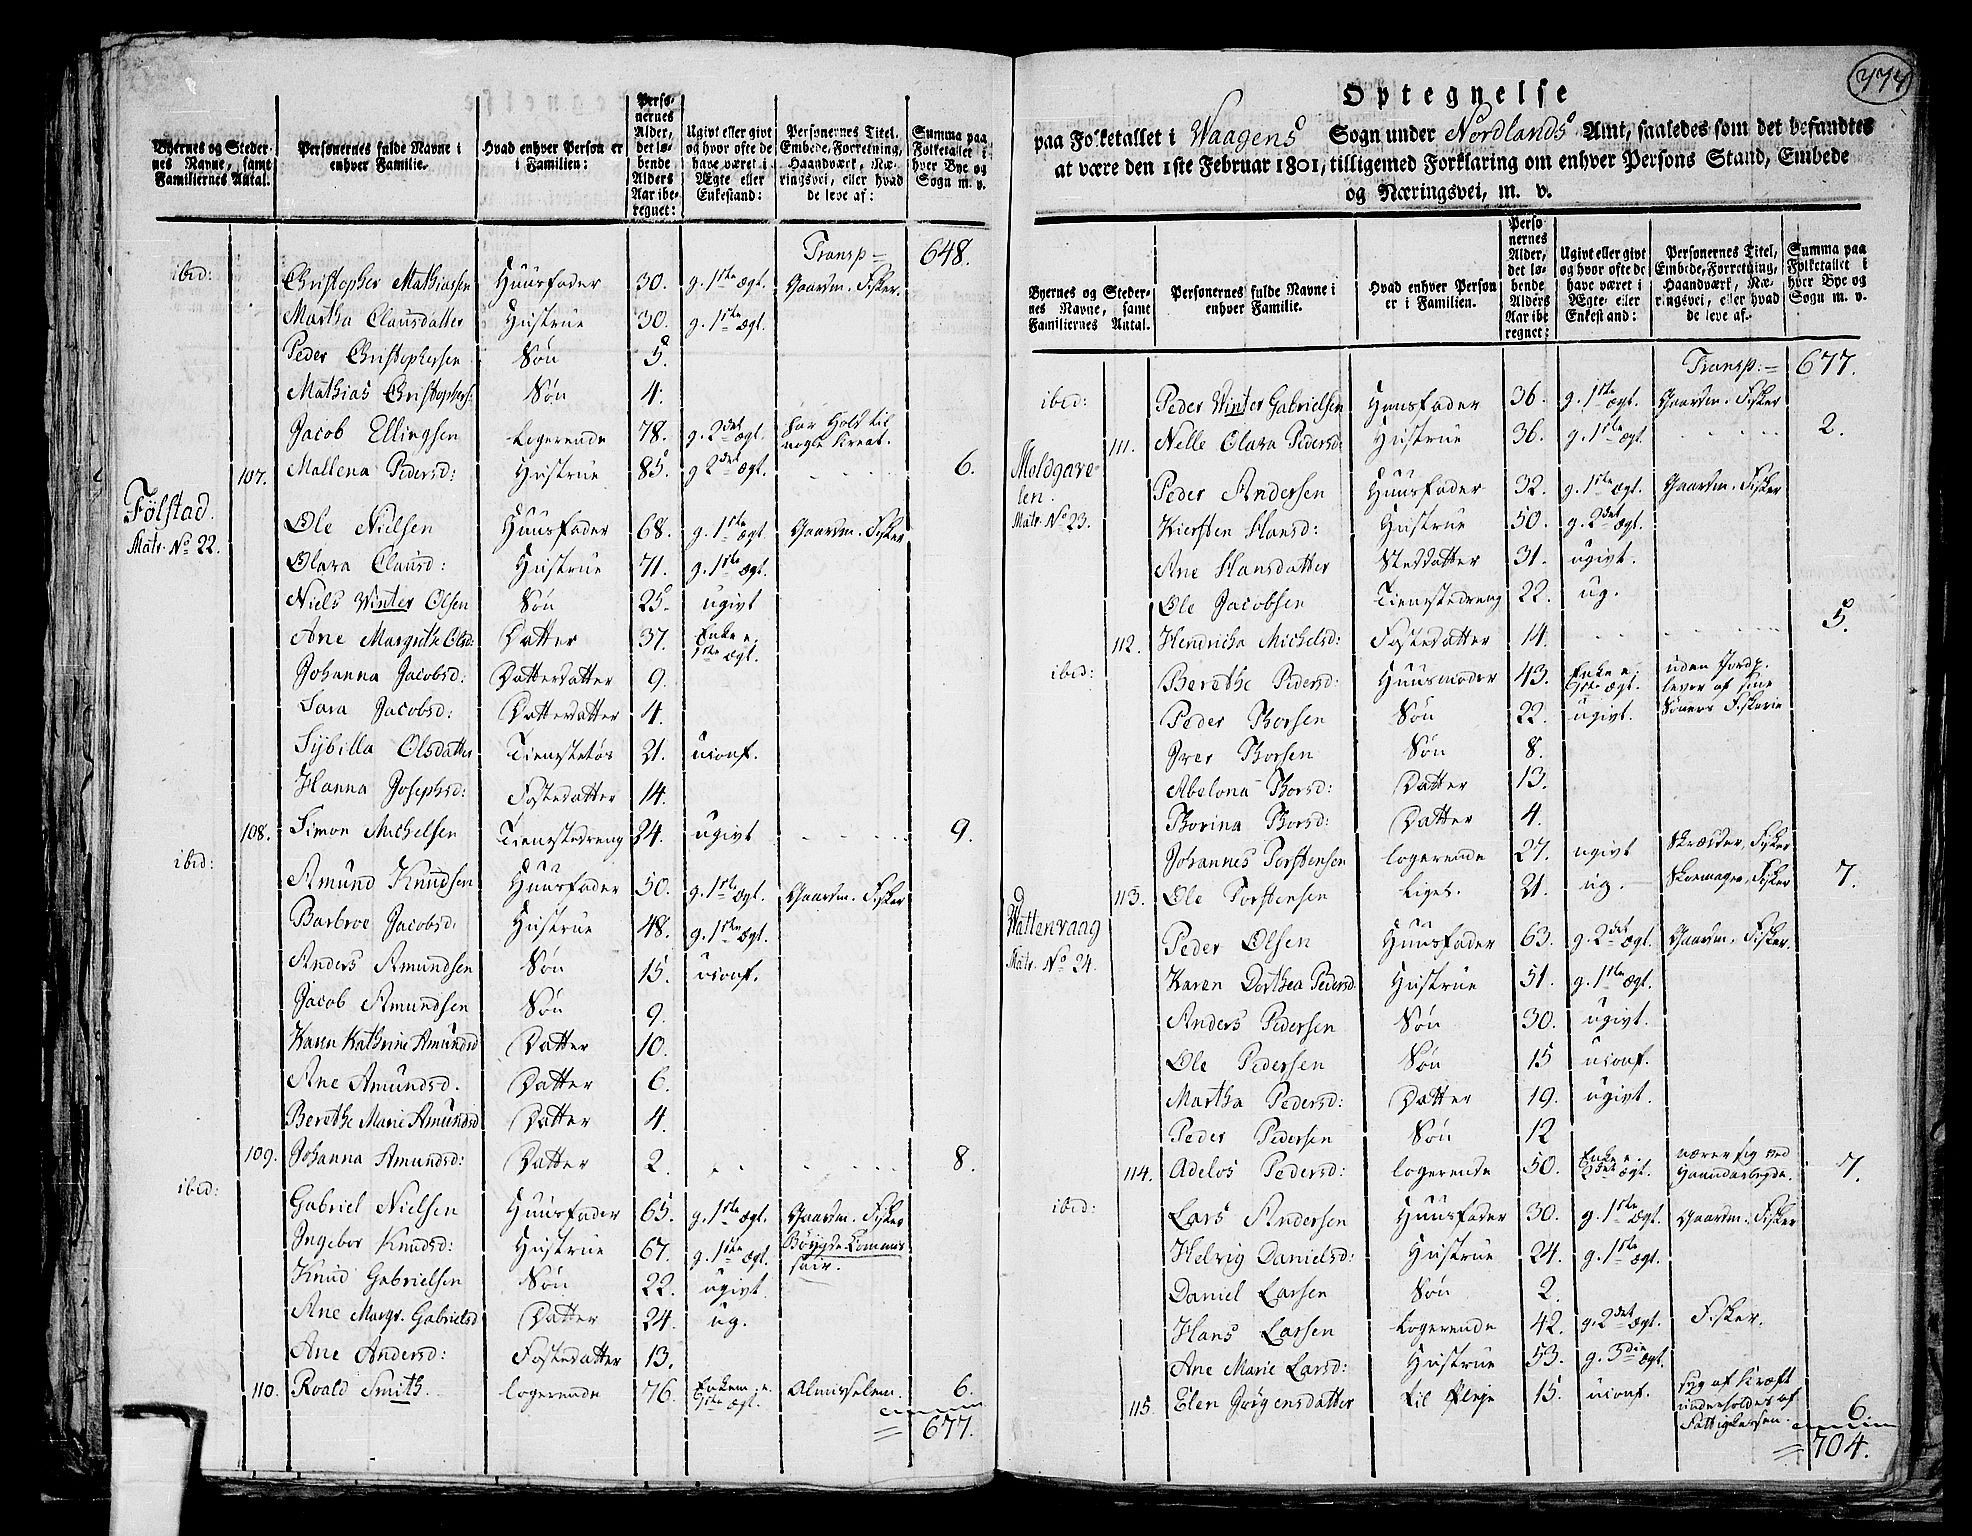 Byernes og Steder-
nes Navne, samt
Familiernes Antal.
Personernes fulde Navne i
enhver Familie.
Hvad enhver Person er
i Familien:
Perso-
nernes
Alder,
det lø-
bende
Alders
Aar ibe-
regnet:
Ugivt eller givt
og hvor ofte de
have været i
Ægte eller
Enkestand:
Personernes Titel,
Embede, Forretning,
Haandværk, Næ-
ringsvei, eller hvad
de leve af:
Summa paa
Folketallet i
hver Bye og
Sogn m. v.
Transp = 648.
ibid: Christopher Mathiassen Huusfader 30. g. 1ste ægt. Gaardm. Fisker.
Martha Clausdatter Hustrue 30. g. 1ste ægt.
Peder Christophersen Søn 5.
Mathias Christophers: Søn 4.
Jacob Ellingsen Logerende 78. g. 2det ægt. har Hold til
nogle Kreat.
107. Mallena Pedersd: Hustrue 85. g 2det ægt. 6.
Følstad.
Matr. No 22.
Ole Nielsen Huusfader 68. g. 1ste ægt. Gaardm. Fisker
Olara Clausd: Hustrue 71. g. 1ste ægt.
Niels Winter Olsen Søn 25. ugivt
Ane Margrethe Olsd: Datter 37. Enke e.
1ste ægt.
Johanna Jacobsd: Datterdatter 9.
Sara Jacobsd: Datterdatter 4.
Sybilla Olsdatter Tienestetøs 21. uconf.
Hanna Josephsd: Fosterdatter 14.
108. Simon Michelsen Tienestedreng 24. ugivt 9.
ibid: Amund Knudsen Huusfader 50. g. 1ste ægt. Gaardm. Fisker
Barbroe Jacobsd: Hustrue 48. g. 1ste ægt.
Anders Amundsen Søn 15. uconf.
Jacob Amundsen Søn 9.
Karen Kathrine Amundsd Datter 10.
Ane Amundsd. Datter 6.
Berethe Marie Amundsd Datter 4.
109. Johanna Amundsd: Datter 2. 8.
ibid: Gabriel Nielsen Huusfader 65. g. 1ste ægt. Gaardm. Fisker
Ingebor Knudsd: Hustrue 67. g. 1ste ægt. Bøygde Commis
sair.
Knud Gabrielsen Søn 22. ugivt.
Ane Margr. Gabrielsd Datter 24. ug.
Ane Andersd: Fosterdatter 13.
110. Roald Smith. logerende 76. Enkem. e.
1ste ægt. Almisselem. 6.
= 677.
774
Optegnelse
paa Folketallet i Waagens Sogn under Nordlands Amt, saaledes som det befandtes
at være den 1ste Februar 1801, tilligemed Forklaring om enhver Persons Stand, Embede
og Næringsvei, m. v.
Byernes og Steder-
nes Navne, samt
Familiernes Antal.
Personernes fulde Navne i
enhver Familie.
Hvad enhver Person
er i Familien.
Perso
nernes
Alder,
det lø-
bende
Alders
Aar ibe
regnet:
Ugivt eller givt
og hvor ofte de
have været i
Ægte- eller
Enkestand:
Personernes Titel,
Embede, Forretning,
Haandværk, Næ-
ringsvei, eller hvad
de leve af.
Summa paa
Folketallet i
hver Bye og
Sogn m. v.
Transp: = 677.
ibid: Peder Winter Gabrielsen Huusfader 36. g. 1ste ægt. Gaardm. Fisker
111. Nelle Olara Pedersd: Hustrue 36. g. 1ste ægt 2.
Moldgave-
len.
Matr. No 23.
Peder Andersen Huusfader 32. g. 1ste ægt. Gaardm. Fisker
Kiersten Hansd: Hustrue 50. g. 2det ægt.
Ane Hansdatter Steddatter 31. ugivt.
Ole Jacobsen Tienestedreng 22. ug.
112. Hendricha Michelsd: Fosterdatter 14. 5.
ibid: Berethe Pedersd: Huusmoder 43. Enke e.
1ste ægt. uden Jord,
lever af sine
Sønners Fiskerie
Peder Thorsen Søn 22. ugivt.
Iver Thorsen Søn 8.
Abelona Thorsd: Datter 13.
Thorina Thorsd: Datter 4.
Johannes Torstensen logerende 27. ugivt Skræder, Fisker
113. Ole Torstensen liges. 21. ug. Skomager, Fisker 7.
Wattenvaag
Matr. No 24.
Peder Olsen Huusfader 63. g. 2det ægt. Gaardm. Fisker.
Karen Dorthea Pedersd Hustrue 51. g. 1ste ægt.
Anders Pedersen Søn 30. ugivt.
Ole Pedersen Søn 15 uconf.
Martha Pedersd: Datter 19. ugivt.
Peder Pedersen Søn 12
114. Adelos Pedersd: logerende 50. Enke e.
2det ægt. nærer sig ved
Haandarbeyde. 7.
ibid: Lars Andersen Huusfader 30. g. 1ste ægt. Gaardm. Fisker
Helvig Danielsd: Hustrue 24. g. 1ste ægt.
Daniel Larsen Søn 2.
Hans Larsen Logerende 42. g. 2det ægt. Fisker.
Ane Marie Larsd: Hustrue 53. g. 3die ægt.
115. Elen Jørgensdatter til Pleje 15. uconf. syg af Kræft
underholdes af
Fattigkassen. 6.
= 704.